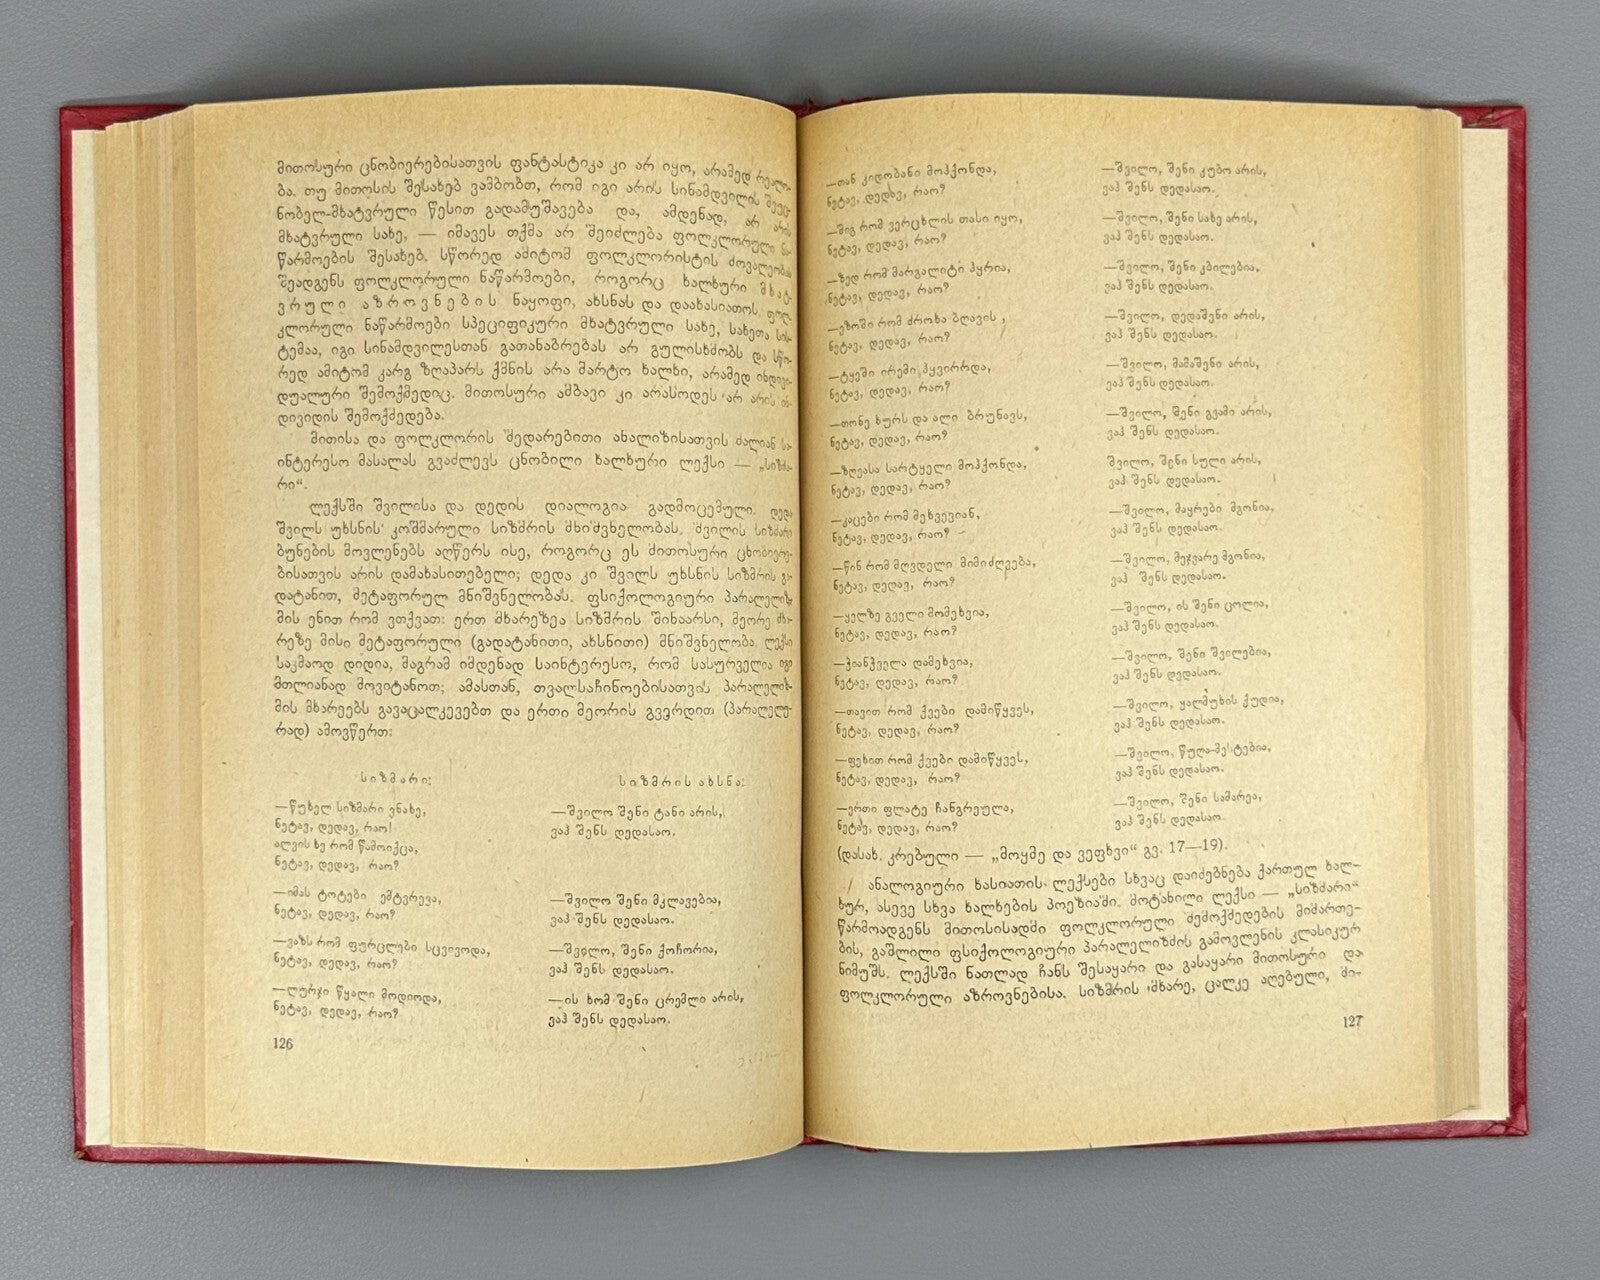 მითოსური ცნობიერებისათვის ფანტასტიკა კი არ იყო, არამედ რეალო-
ბა. თუ მითოსის შესახებ ვამბობთ, რომ იგი არის სინამდვილის შეუც-
ნობელ-მხატვრული წესით გადამუშავება და, ამდენად, არ არის
მხატვრული სახე, — იმავეს თქმა არ შეიძლება ფოლკლორული ნა-
წარმოების შესახებ. სწორედ ამიტომ ფოლკლორისტის მოვალეობას
შეადგენს ფოლკლორული ნაწარმოები, როგორც ხალხური მხატ-
ვრული აზროვნების ნაყოფი, ახსნას და დაახასიათოს. ფოლ-
კლორული ნაწარმოები სპეციფიკური მხატვრული სახე, სახეთა სის-
ტემაა, იგი სინამდვილესთან გათანაბრებას არ გულისხმობს და სწო-
რედ ამიტომ კარგ ზღაპარს ქმნის არა მარტო ხალხი, არამედ ინდივი-
დუალური შემოქმედიც. მითოსური ამბავი კი არასოდეს არ არის ინ-
დივიდის შემოქმედება.
მითისა და ფოლკლორის შედარებითი ანალიზისათვის ძალიან სა-
ინტერესო მასალას გვაძლევს ცნობილი ხალხური ლექსი — „სიზმა-
რი“.
ლექსში შვილისა და დედის დიალოგია გადმოცემული. დედა
შვილს უხსნის კოშმარული სიზმრის მნიშვნელობას. შვილის სიზმარი
ბუნების მოვლენებს აღწერს ისე, როგორც ეს მითოსური ცნობიერე-
ბისათვის არის დამახასითებელი; დედა კი შვილს უხსნის სიზმრის გა-
დატანით, მეტაფორულ მნიშვნელობას. ფსიქოლოგიური პარალელიზ-
მის ენით რომ ვთქვათ: ერთ მხარეზეა სიზმრის შინაარსი, მეორე მხა-
რეზე მისი მეტაფორული (გადატანითი, ახსნითი) მნიშვნელობა. ლექსი
საკმაოდ დიდია, მაგრამ იმდენად საინტერესო, რომ სასურველია იგი
მთლიანად მოვიტანოთ; ამასთან, თვალსაჩინოებისათვის პარალელიზ-
მის მხარეებს გავაცალკევებთ და ერთი მეორის გვერდით (პარალელუ-
რად) ამოვწერთ:
სიზმარი:
—წუხელ სიზმარი ვნახე,
ნეტავ, დედავ, რაო!
ალვის ხე რომ წამოიქცა,
ნეტავ, დედავ, რაო?
—იმას ტოტები ემტვრევა,
ნეტავ, დედავ, რაო?
—ვაზს რომ ფურცლები სცვივოდა,
ნეტავ, დედავ, რაო?
—ლურჯი წყალი მოდიოდა,
ნეტავ, დედავ, რაო?
სიზმრის ახსნა:
—შვილო შენი ტანი არის,
ვაჰ შენს დედასაო.
—შვილო შენი მკლავებია,
ვაჰ შენს დედასაო.
—შვილო, შენი ქოჩორია,
ვაჰ შენს დედასაო.
—ის ხომ შენი ცრემლი არის,
ვაჰ შენს დედასაო.
126
—თან კიდობანი მოჰქონდა,
ნეტავ, დედავ, რაო?
—შიგ რომ ვერცხლის თასი იყო,
ნეტავ, დედავ, რაო?
—ზედ რომ მარგალიტი ჰყრია,
ნეტავ, დედავ, რაო?
—ეზოში რომ ძროხა ბღავის,
ნეტავ, დედავ, რაო?
—ტყეში ირემი ჰყვირრდა,
ნეტავ, დედავ, რაო?
—თონე ხურს და ალი ბრუნავს,
ნეტავ, დედავ, რაო?
—ზღვასა სარტყელი მოჰქონდა,
ნეტავ, დედავ, რაო?
—კაცები რომ მეხვევიან,
ნეტავ, დედავ, რაო?
—წინ რომ მღვდელი მიმიძღვება,
ნეტავ, დედავ, რაო?
—ყელზე გველი მომეხვია,
ნეტავ, დედავ, რაო?
—ჭიანჭველა დამეხვია,
ნეტავ, დედავ, რაო?
—თავით რომ ქვები დამიწყვეს,
ნეტავ, დედავ, რაო?
—ფეხით რომ ქვები დამიწყვეს,
ნეტავ, დედავ, რაო?
—ერთი ფლატე ჩანგრეულა,
ნეტავ, დედავ, რაო?
—შვილო, შენი კუბო არის,
ვაჰ შენს დედასაო.
—შვილო, შენი სახე არის,
ვაჰ შენს დედასაო.
—შვილო, შენი კბილებია,
ვაჰ შენს დედასაო.
—შვილო, დედაშენი არის,
ვაჰ შენს დედასაო.
—შვილო, მამაშენი არის,
ვაჰ შენს დედასაო.
—შვილო, შენი გვამი არის,
ვაჰ შენს დედასაო.
შვილო, შენი სული არის,
ვაჰ შენს დედასაო.
—შვილო, მაყრები მგონია,
ვაჰ შენს დედასაო.
—შვილო, მეჯვარე მგონია,
ვაჰ შენს დედასაო.
—შვილო, ის შენი ცოლია,
ვაჰ შენს დედასაო.
—შვილო, შენი შვილებია,
ვაჰ შენს დედასაო.
—შვილო, ყალმუხის ქუდია,
ვაჰ შენს დედასაო.
—შვილო, წუღა-მესტებია,
ვაჰ შენს დედასაო.
—შვილო, შენი სამარეა,
ვაჰ შენს დედასაო.
(დასახ. კრებული — „მოყმე და ვეფხვი“ გვ. 17—19).
ანალოგიური ხასიათის ლექსები სხვაც დაიძებნება ქართულ ხალ-
ხურ, ასევე სხვა ხალხების პოეზიაში. მოტანილი ლექსი — „სიზმარი“
წარმოადგენს მითოსისადმი ფოლკლორული შემოქმედების მიმართე-
ბის, გაშლილი ფსიქოლოგიური პარალელიზმის გამოვლენის კლასიკურ
ნიმუშს. ლექსში ნათლად ჩანს შესაყარი და გასაყარი მითოსური და
ფოლკლორული აზროვნებისა. სიზმრის მხარე, ცალკე აღებული, მი-
127